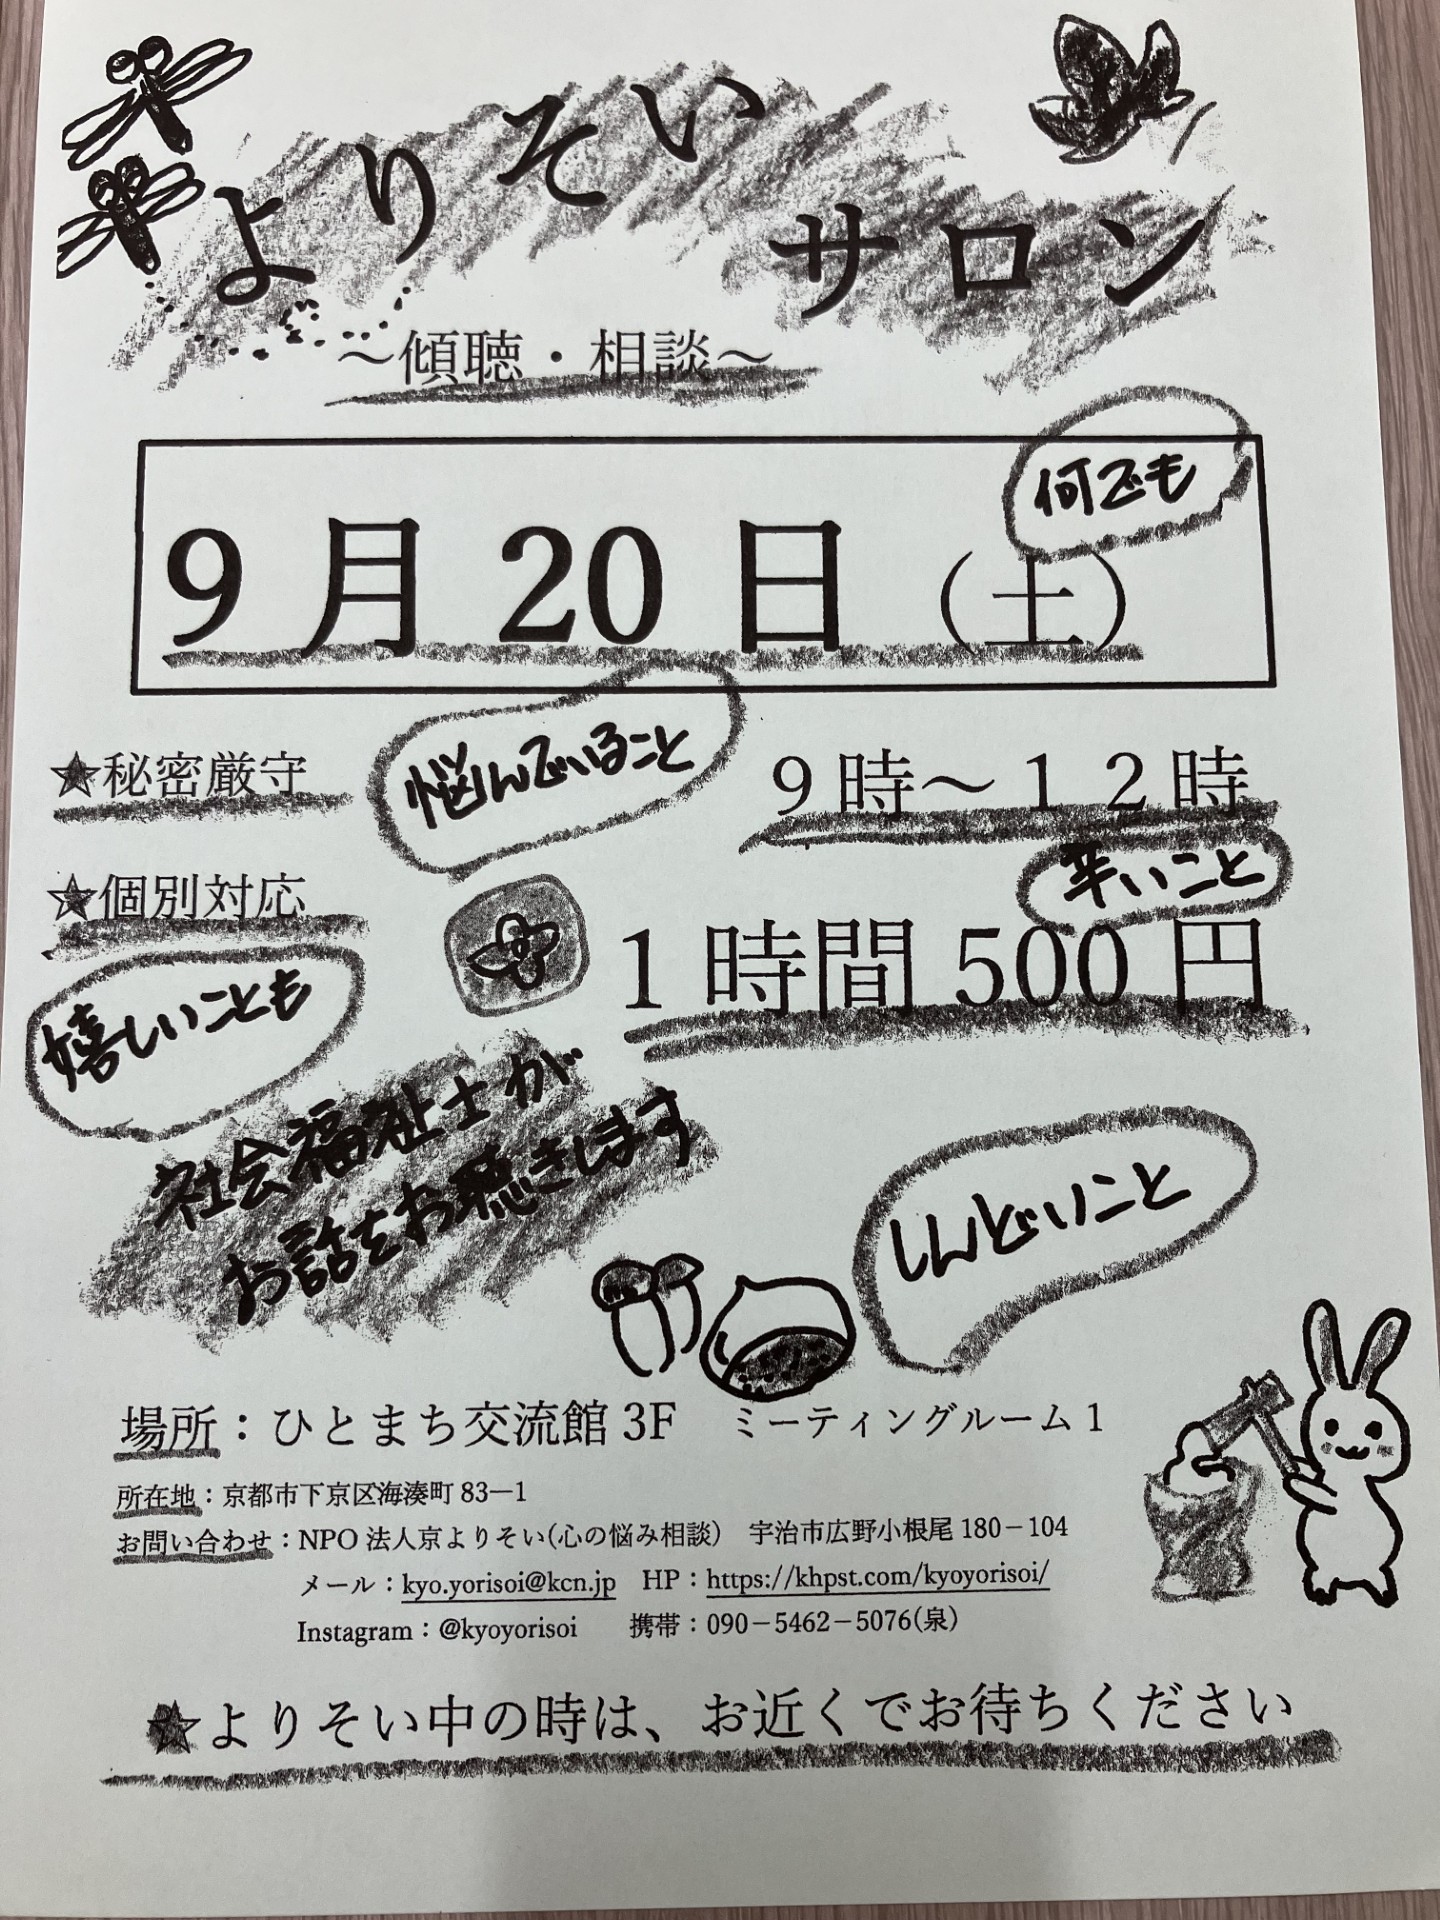 よりそい
サロン
～傾聴・相談～
何でも
9月20日（土）
☆秘密厳守
悩んでいること
9時～12時
☆個別対応
辛いこと
1時間500円
嬉しいことも
社会福祉士が
お話をお聴きします
しんどいこと
場所：ひとまち交流館3F　ミーティングルーム1
所在地：京都市下京区海湊町83―1
お問い合わせ：NPO法人京よりそい(心の悩み相談)　宇治市広野小根尾180－104
メール：kyo.yorisoi@kcn.jp　HP：https://khpst.com/kyoyorisoi/
Instagram：@kyoyorisoi　携帯：090－5462－5076(泉)
☆よりそい中の時は、お近くでお待ちください